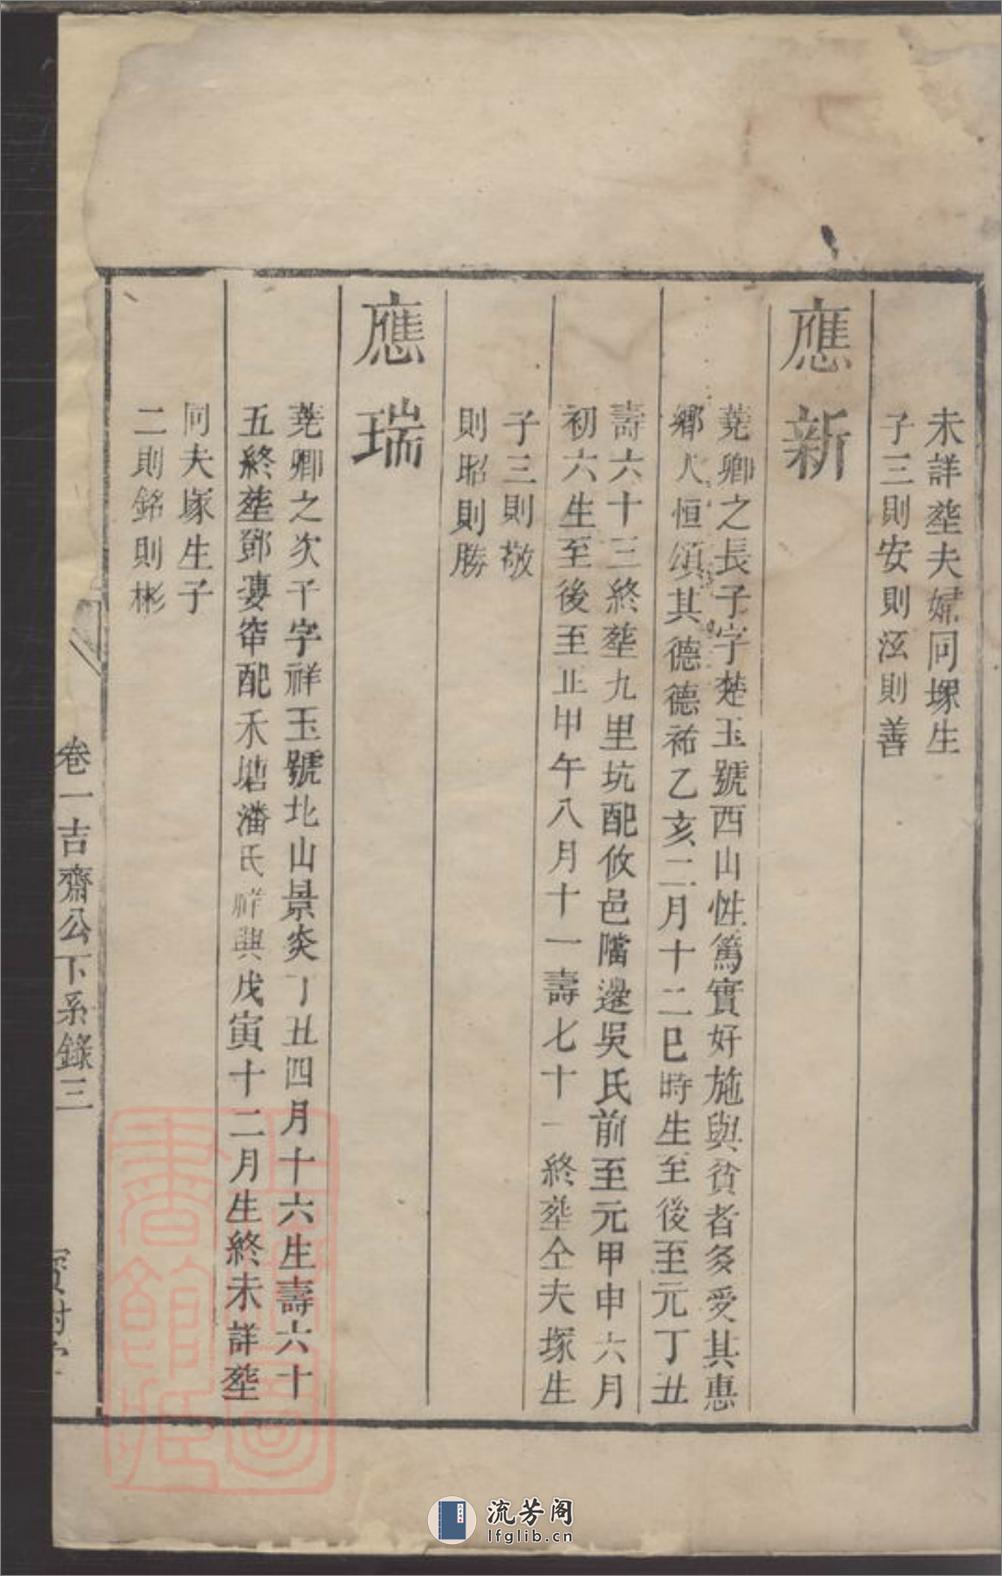 未詳塟夫婦同塚生
子三則安則泫則善
應新
堯卿之長子字楚玉號西山性篤實好施與貧者多受其惠
鄉人恒頌其德德祐乙亥二月十二巳時生至後至元丁丑
壽六十三終塟九里坑配攸邑障邊吳氏前至元甲申六月
初六生至後至正甲午八月十一壽七十一終塟仝夫塚生
子三則敬
則昭則勝
應瑞
堯卿之次子字祥玉號北山景炎丁丑四月十六生壽六十
五終塟鄧婆窂配禾塘潘氏祥興戊寅十二月生終未詳塟
同夫塚生子
二則銘則彬
卷一吉齋公下系錄三
流芳阁
lfglib.cn